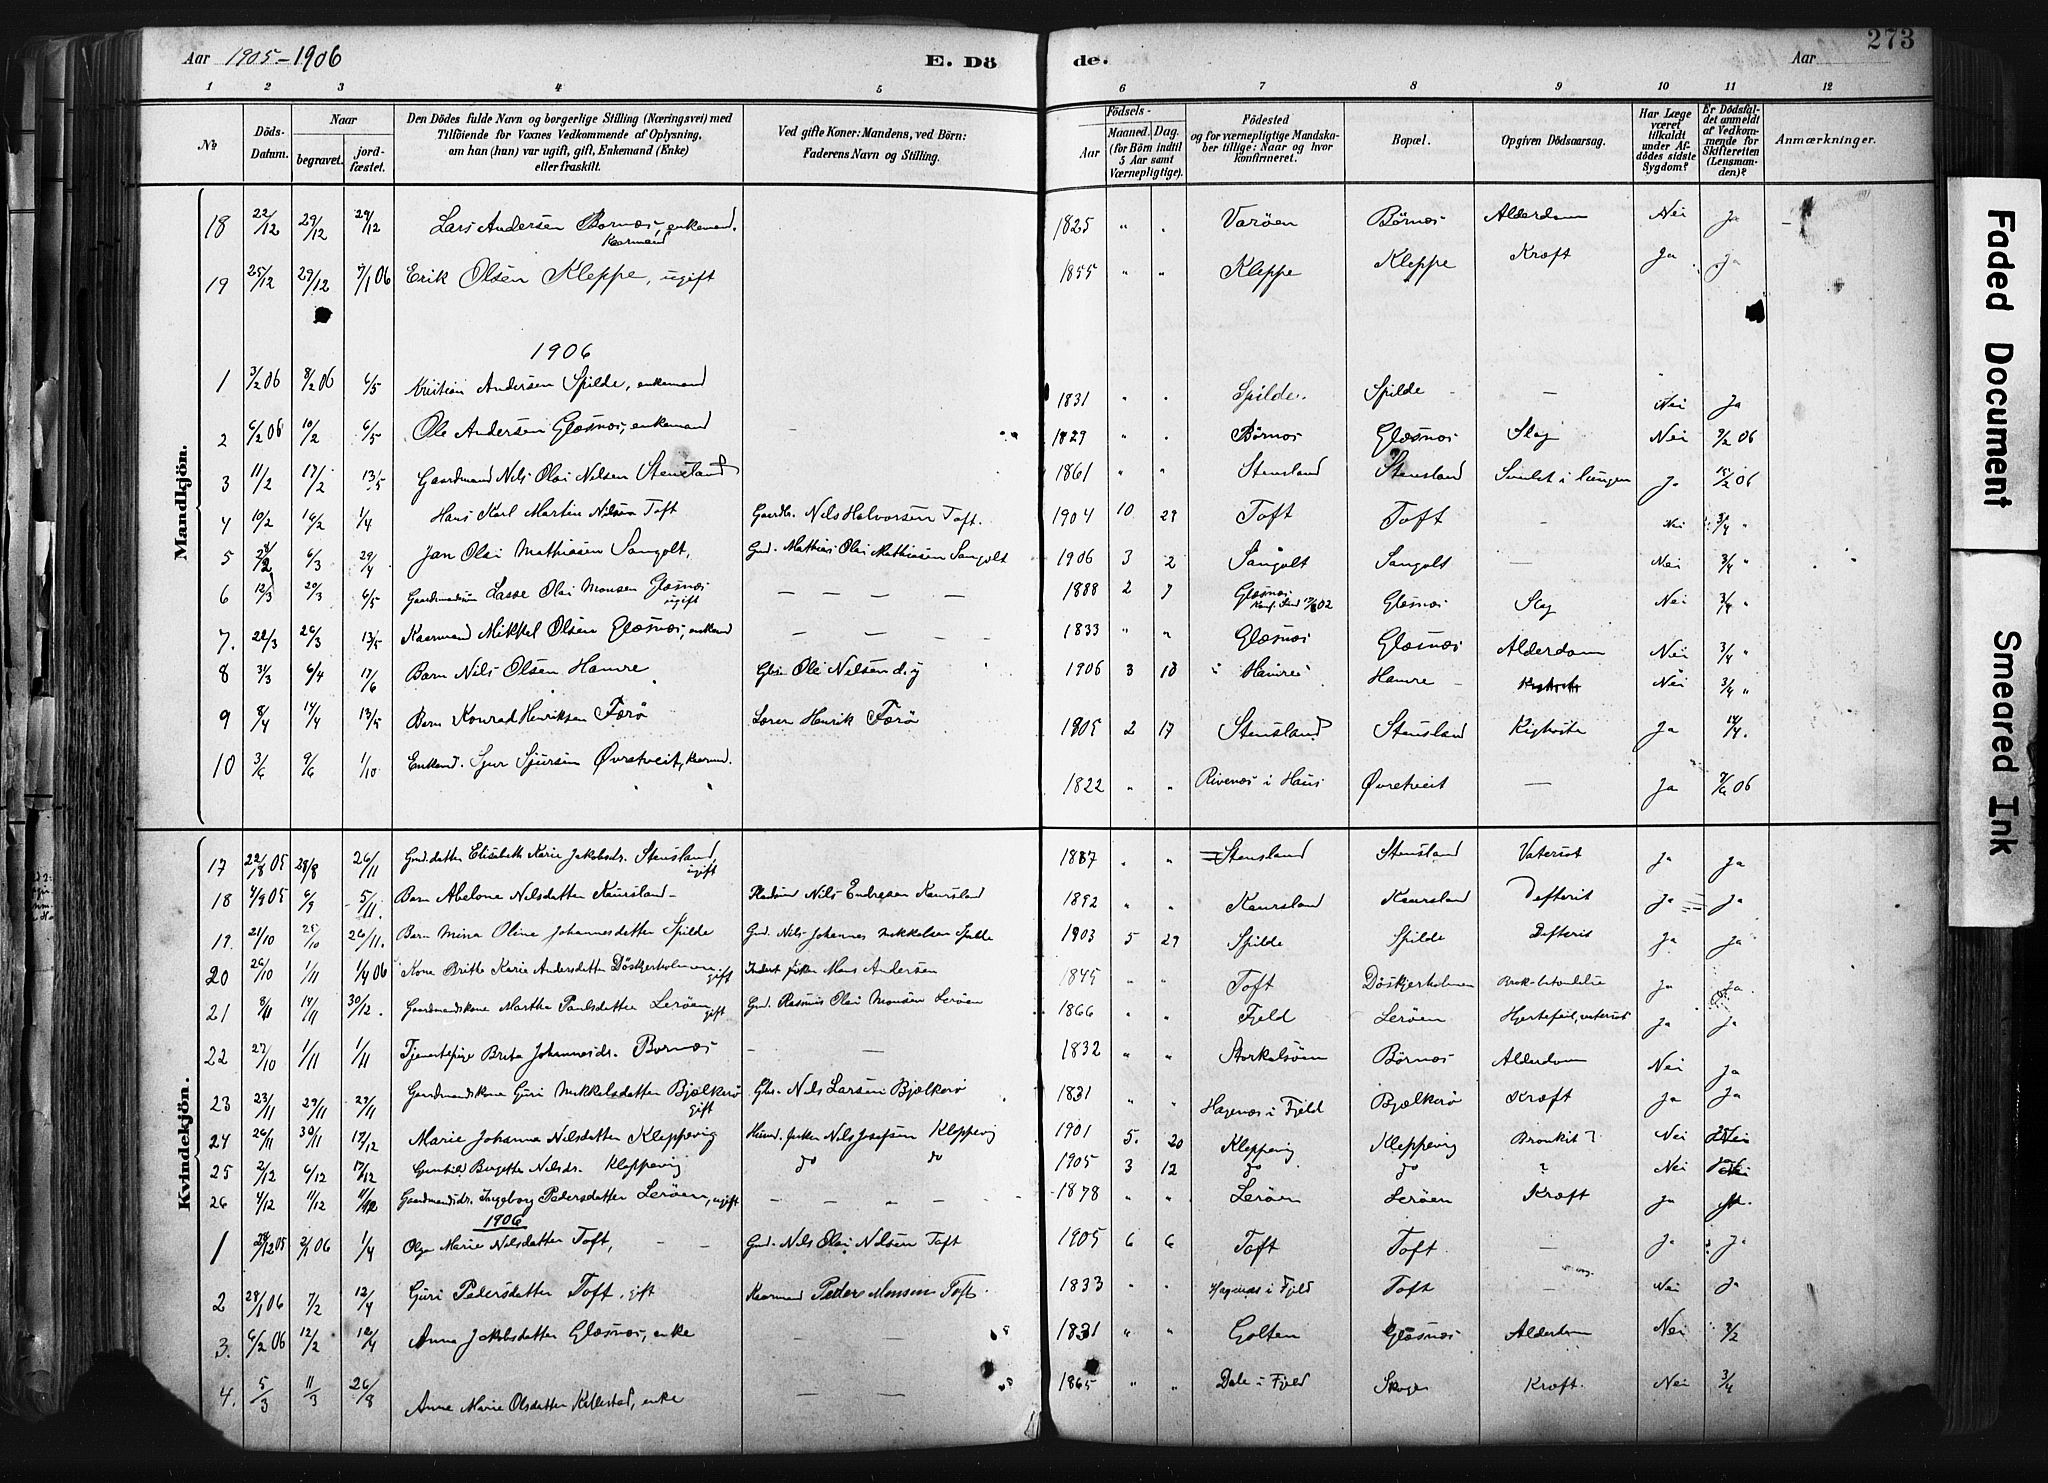 Aar 1905-1906 E. Dö de. Aar 273
1 2 3 4 5 6 7 8 9 10 11 12
№ Döds-Datum. Naar begravet. jordfæstet. Den Dödes fulde Navn og borgerlige Stilling (Næringsvei) med Tilföiende for Voxnes Vedkommende af Oplysning, om han (hun) var ugift, gift, Enkemand (Enke) eller fraskilt. Ved gifte Koner: Mandens, ved Börn: Faderens Navn og Stilling. Födsels- Aar Maaned. Dag. (for Börn indtil 5 Aar samt Værnepligtige). Födested og for værnepligtige Mandskaber tillige: Naar og hvor konfirmeret. Bopæl. Opgiven Dödsaarsag. Har Læge været tilkaldt under Afdödes sidste Sygdom? Er Dödsfaldet anmeldt af Vedkommende for Skifteretten (Lensmanden)? Anmærkninger.
Mandkjön.
18 22/12 29/12 29/12 Lars Andersen Bornæs, enkemand. Kaarmand 1825 " " Varöen Börnæs Alderdom Nei Ja
19 25/12 29/12 7/1 06 Erik Olsen Kleppe, ugift 1855 " " Kleppe Kleppe Kræft Ja Ja
1906
1 3/2 06 8/2 06 6/5 Kristian Andersen Spilde, enkemand 1831 " " Spilde Spilde — Nei Ja
2 6/2 06 10/2 6/5 Ole Andersen Glæsnæs, enkemand — 1829 " " Börnæs Glæsnæs Slag Nei 9/2 06
3 11/2 17/2 13/5 Gaardmand Nils Olai Nilsen Stensland 1861 " " Stensland Stensland i lungen Ja 15/2 06
4 10/2 16/2 1/4 Hans Karl Martin Nilsen Toft Gaardbr. Nils Halvorsen Toft. 1904 10 29 Toft Toft — Nei 3/4 "
5 6/3 29/4 Jan Olai Mathiasen Sangolt, Gmd. Mathias Olai Mathiasen Sangolt 1906 3 2 Sangolt Sangolt — Nei 3/4 "
6 12/3 20/3 6/5 Lasse Olai Monsen Glæsnæs ugift — — — 1888 2 7 Glæsnæs Konf. Sund 02 Glæsnæs Slag Nei 3/4 "
7. 22/3 26/3 13/5 Kaarmand Mikkel Olsen Glæsnæs, enkemd — — — 1833 " " Glæsnæs Glæsnæs Alderdom Nei 3/4 "
8 31/3 6/4 17/6 Barn Nils Olsen Hamre Gbr. Ole Nilsen d.y 1906 3 18 Hamre Hamre Nei 3/4 "
9 8/4 14/4 13/5 Barn Konrad Henriksen Færö Lærer Henrik Færö 1905 2 17 Stensland Stensland Kighoste Ja 14/4.
10 3/6 9/6 1/10 Enkemd. Sjur Sjursen Övretveit, kaarmd. 1822 " " Rivenæs i Haus Övretveit — Ja 7/6 06
Kvindekjön.
17 22/8 05 28/8 26/11 Gmd.datter Elisabeth Karie Jakobsdr. Stensland, ugift 1887 " " Stensland Stensland Vatersot Ja Ja
18 4/9 05 6/9 5/11 Barn Abelone Nilsdatter Kausland Nils Endresen Kausland 1892 " " Kausland Kausland Defterit Ja Ja
19. 21/10 25/10 26/11. Barn Mina Oline Johannesdatter Spilde Gmd. Nils Johannes Mikkelsen Spilde 1903 5 29 Spilde Spilde Defterit Ja Ja
20 26/10 1/11 1/4 06 Kone Britte Karie Andersdatter Döskjerholmen gift Mons Andersen 1845 " " Toft Döskjerholmen Ja Ja.
21 8/11 14/11 30/12. Gaardmandskone Martha Paulsdatter Leröen gift Gmd. Rasmus Olai Monsen Leröen 1866 " " Fjeld Leröen Hjertefeil, vatersot Ja Ja
22 27/10 1/11 1/11 Tjenestepige Brita Johannesdr. Bornæs — — 1832 " " Storkelsöen Börnæs Alderdom Nei Ja
23 23/11 29/11 29/11 Gaardmandskone Guri Mikkelsdatter Bjælkerö gift Gbr. Nils Larsen Bjælkerö 1831 " " Hagenæs i Fjeld Bjælkerö Kræft Ja Ja
24 26/11 30/11 17/12 Marie Johanna Nilsdatter Kleppevig Nils Josefsen Kleppevig 1901 5. 20 Kleppevig Kleppevig Bronkit? Nei
25 2/12 6/12 17/12 Gunhild Bergette Nilsdr. Kleppevig do do 1905 3 12 do do ? Nei
26 4/12 11/12 11/12 Gaardmandsdr. Ingeborg Pedersdatter Leröen, ugift — — — 1878 " " Leröen Leröen Kræft Ja
1906
1 05 2/1 06 1/4 Olga Marie Nilsdatter Toft, — — Gmd. Nils Olai Nilsen Toft 1905 6 6 Toft Toft. — Ja Ja
2 28/1 06 7/2 12/4 Guri Pedersdatter Toft, gift Kaarmand Peder Monsen Toft. 1833 " " Hagenæs i Fjeld Toft Nei Ja
3. 6/2 06 12/2 12/4 Anna Jakobsdatter Glæsnæs, enke — — 1831 " " Golten Glæsnæs Alderdom Nei 9/2
4. 5/3 11/3 26/8 Anna Marie Olsdatter Kallestad, enke — — 1865 " " Dale i Fjeld Skoge Kræft. Nei 3/4
Faded Document
Smeared Ink